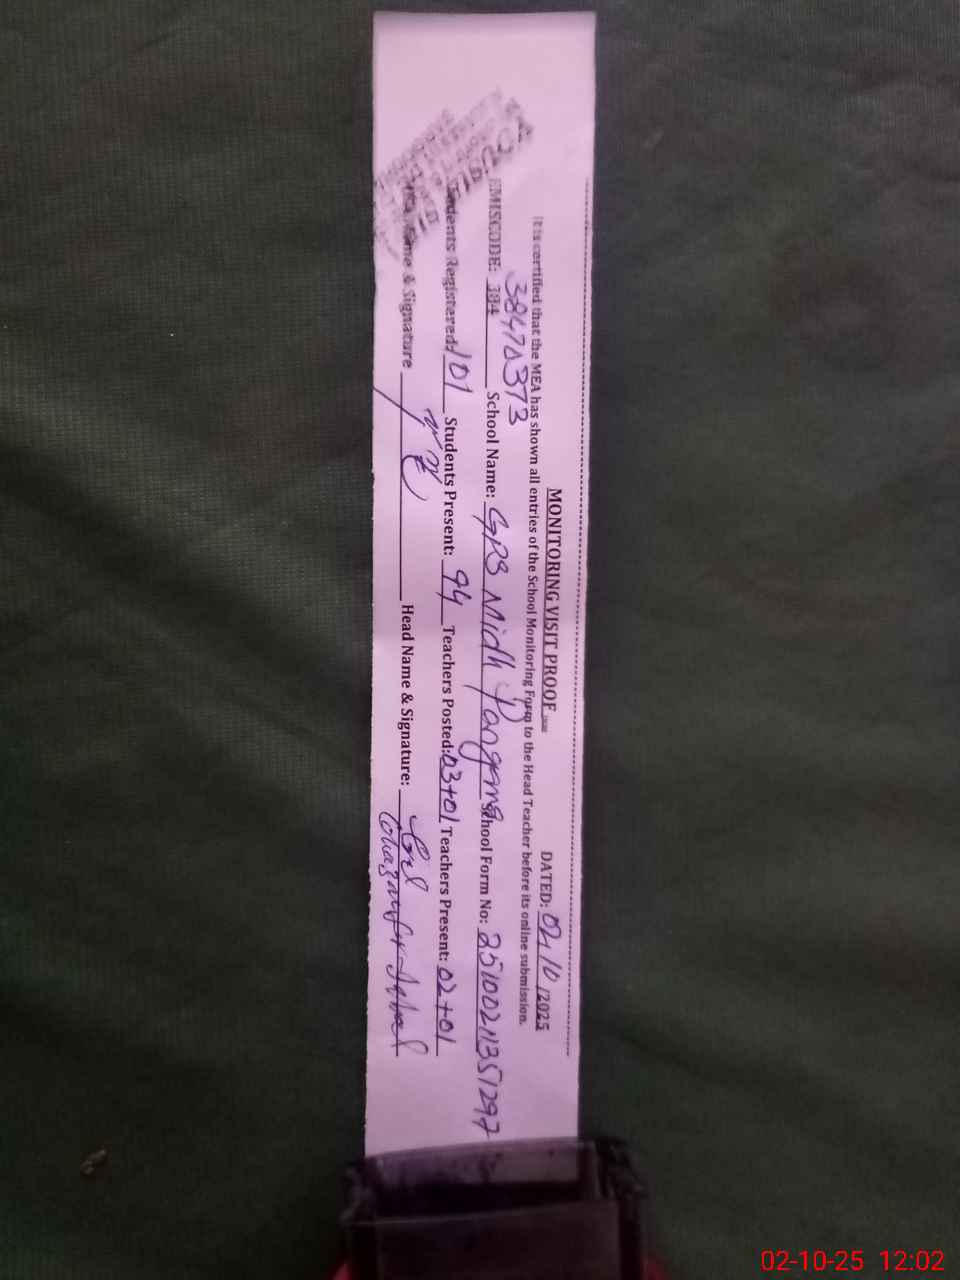 MONITORING VISIT PROOF DATED: 02/10/2025
It is certified that the MEA has shown all entries of the School Monitoring Form to the Head Teacher before its online submission.
EMISCODE: 384 School Name: GPS Midh Pargana School Form No: 25100211351297
Students Registered: 101 Students Present: 94 Teachers Posted: 03+01 Teachers Present: 02+01
Name & Signature Head Name & Signature:
Iqbal
02-10-25 12:02